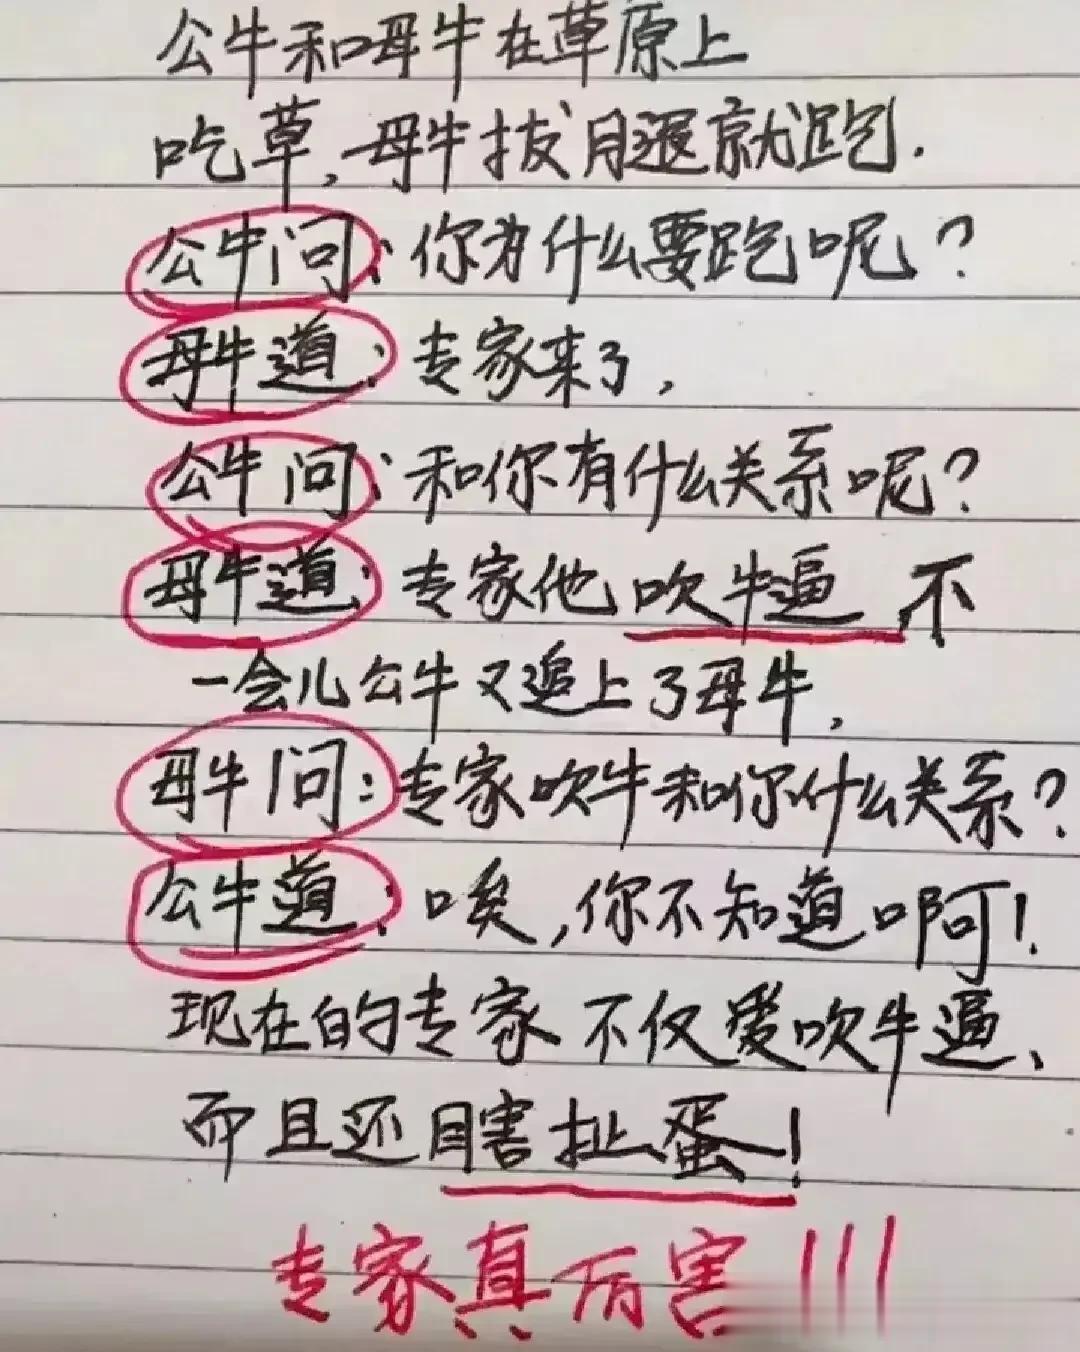 公牛和母牛在草原上
吃草,母牛拔腿就跑.
公牛问:你为什么要跑呢?
母牛道:专家来了,
公牛问:和你有什么关系呢?
母牛道:专家他吹牛逼,不
一会儿公牛又追上了母牛,
母牛问:专家吹牛和你什么关系?
公牛道:唉,你不知道啊!
现在的专家不仅爱吹牛逼、
而且还瞎扯蛋!
专家真厉害!!!